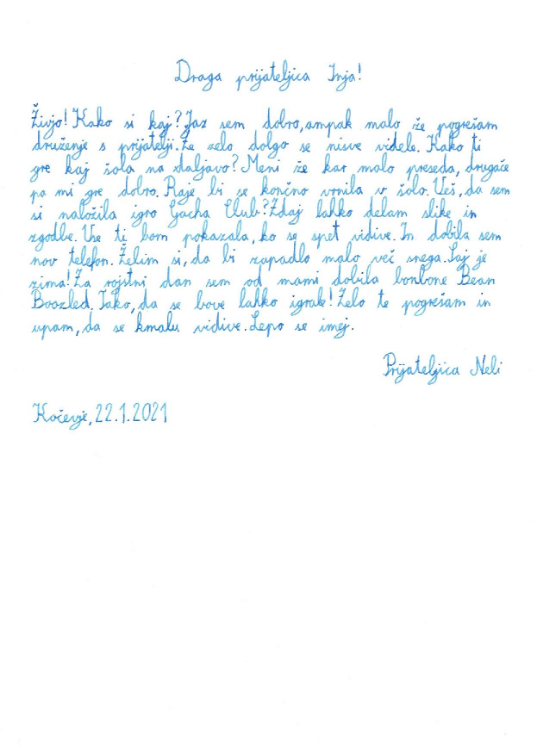 Draga prijateljica Inja!
Živjo! Kako si kaj? Jaz sem dobro, ampak malo že pogrešam
druženje s prijatelji. Že zelo dolgo se nisve videle. Kako ti
gre kaj šola na daljavo? Meni že kar malo preseda, drugače
pa mi gre dobro. Raje bi se končno vrnila v šolo. Veš, da sem
si naložila igro Gacha Club? Zdaj lahko delam slike in
zgodbe. Vse ti bom pokazala, ko se spet vidive. In dobila sem
nov telefon. Želim si, da bi zapadlo malo več snega. Saj je
zima! Za rojstni dan sem od mami dobila bonbone Bean
Boozled. Tako, da se bove lahko igrale! Zelo te pogrešam in
upam, da se kmalu vidive. Lepo se imej.
Prijateljica Neli
Kočevje, 22.1.2021